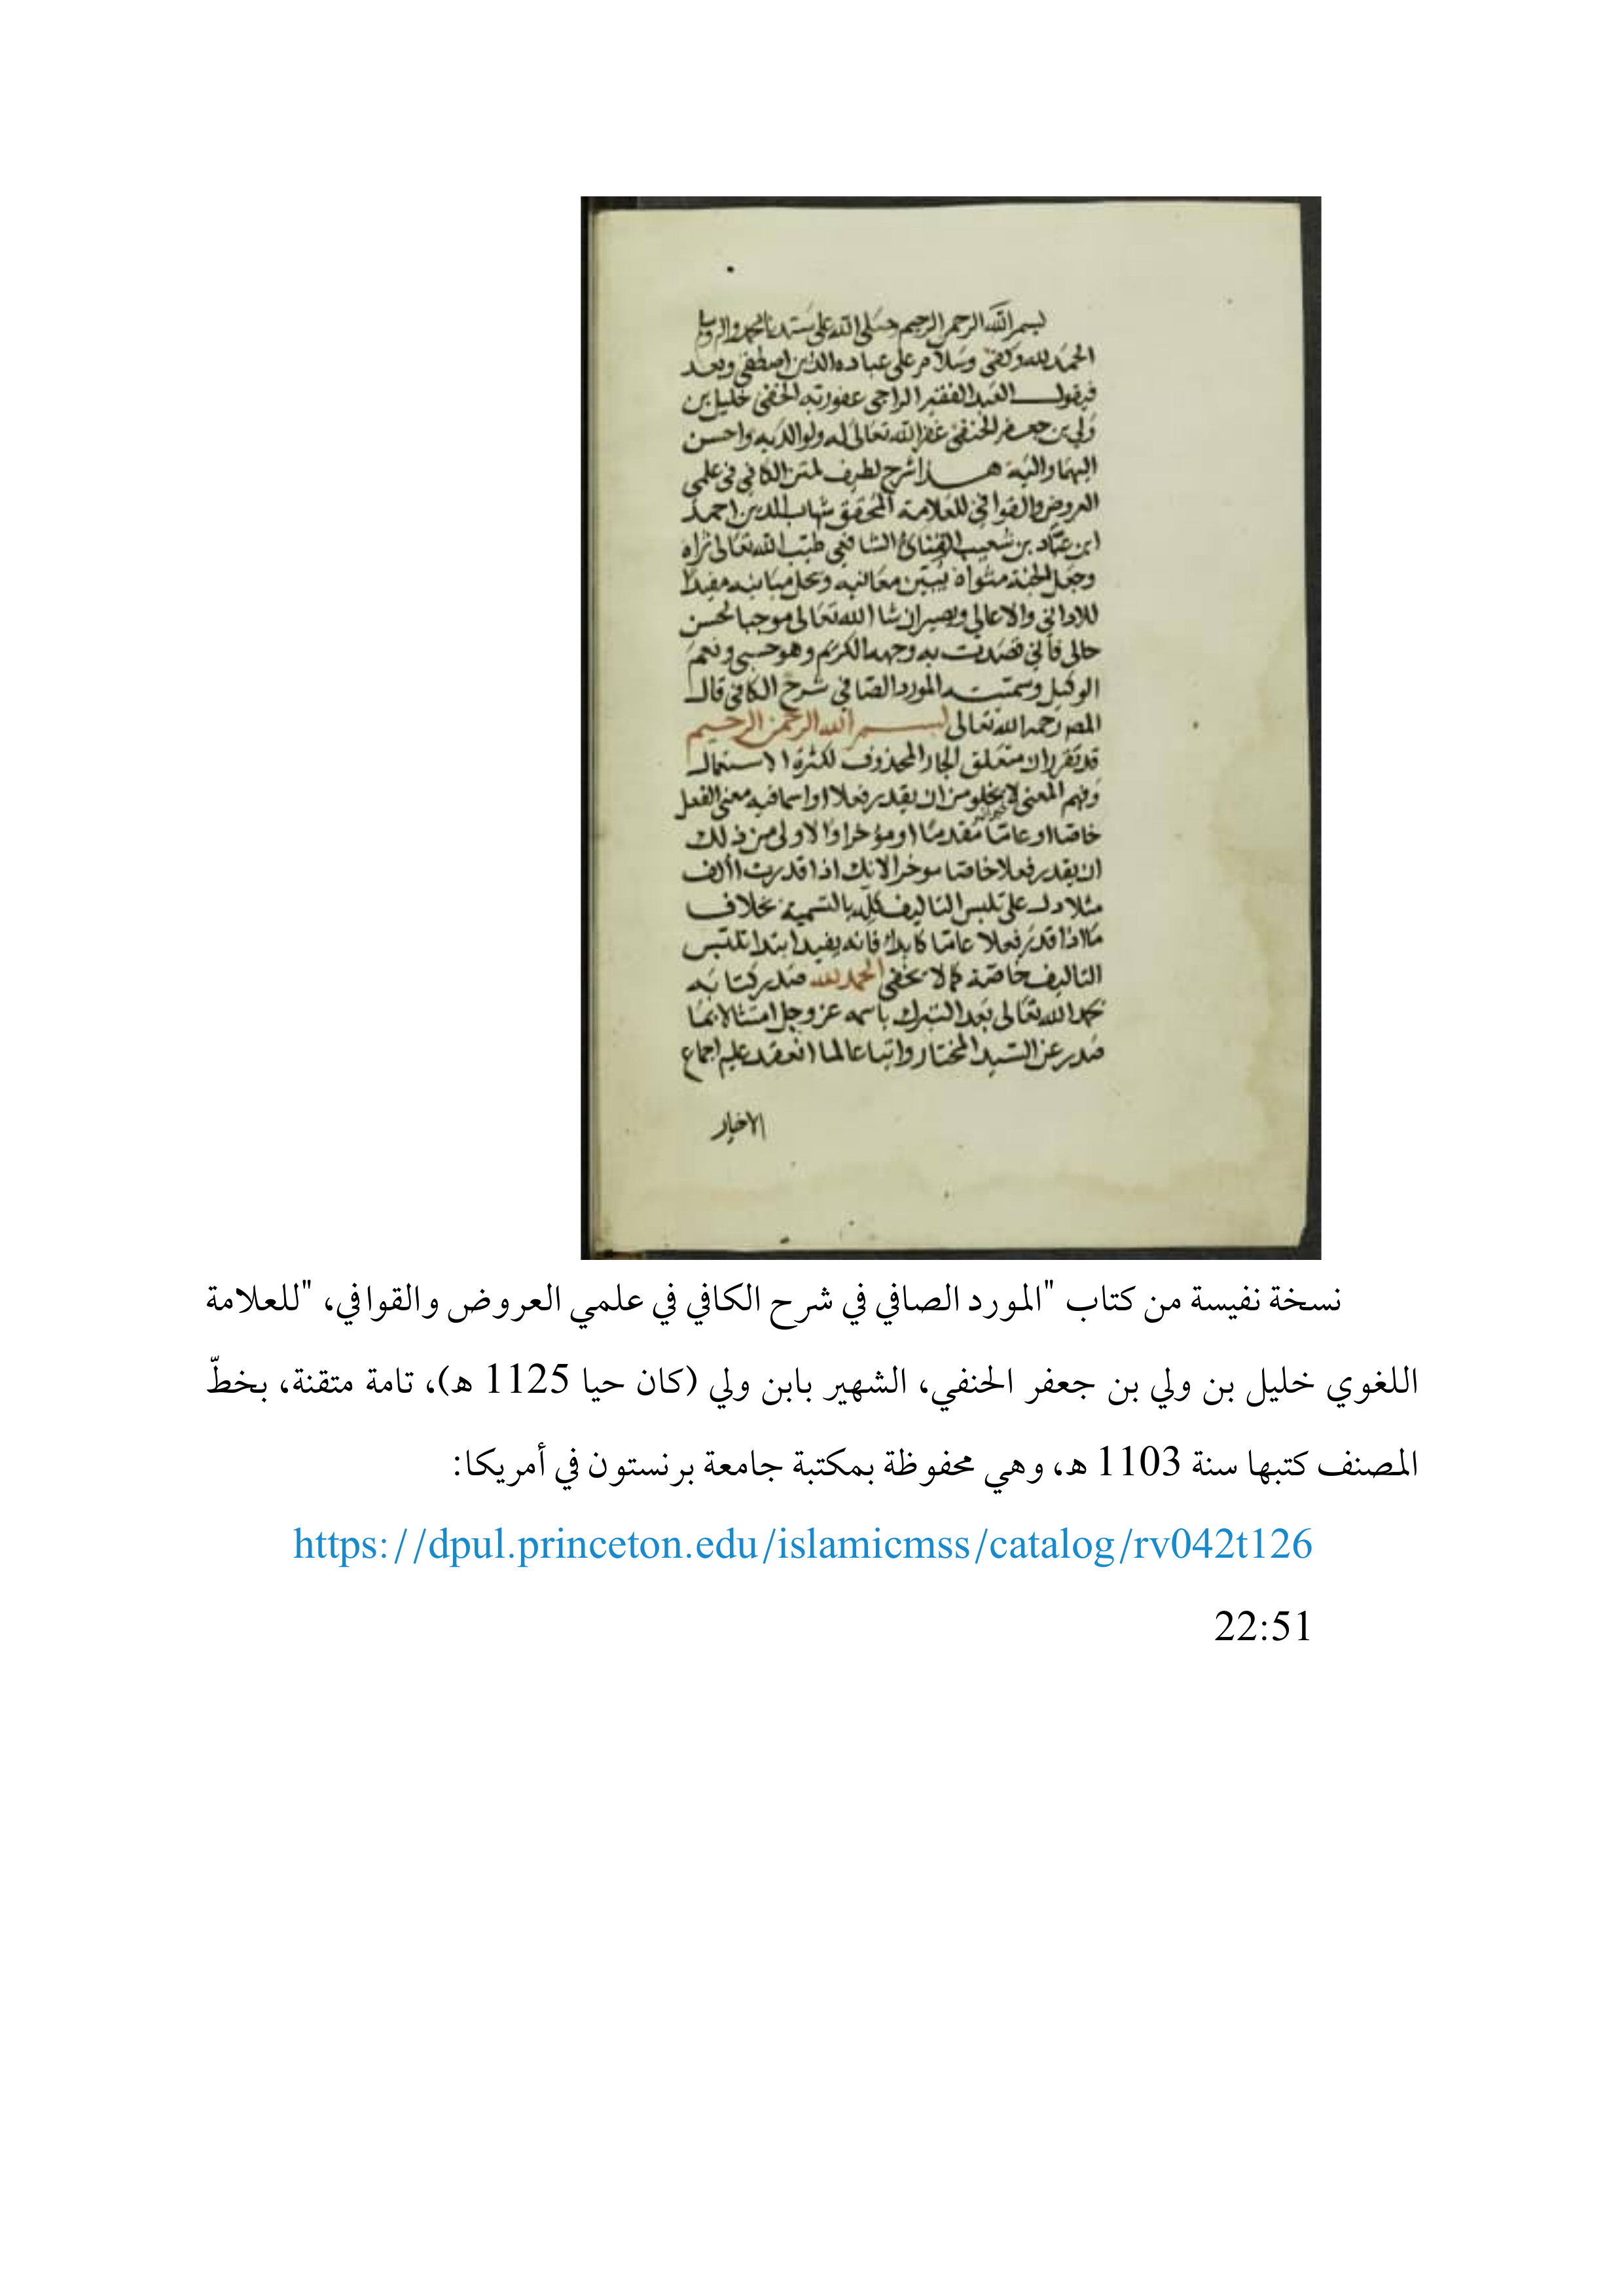 بسم الله الرحمن الرحيم وصلى الله على سيدنا محمد واله وسلم
الحمد لله وكفى وسلام على عباده الذين اصطفى وبعد
فيقول العبد الفقير الراجي عفو ربه الخفي خليل بن
ولي بن جعفر الحنفي غفر الله تعالى له ولوالديه واحسن
اليهما واليه هذا شرح لطيف لمتن الكافي في علمي
العروض والقوافي للعلامة المحقق شهاب الدين احمد
ابن عباد بن شعيب القنائي الشافعي طيب الله تعالى ثراه
وجعل الجنة مثواه يبين معانيه ويحل مبانيه مفيدا
للاداني والاعالي ويصير ان شا الله تعالى موجبا لحسن
حالي فاني قصدت به وجهه الكريم وهو حسبي ونعم
الوكيل وسميته المورد الصافي في شرح الكافي قال
المص رحمه الله تعالى بسم الله الرحمن الرحيم
قد تقرر ان متعلق الجار المحذوف لكثرة الاستعمال
وفهم المعنى لا يخلو من ان يقدر فعلا او اسما فيه معنى الفعل
خاصا او عاما مقدما او مؤخرا والاولى من ذلك
ان يقدر فعلا خاصا موخرا لانك اذا قدرت أألف
مثلا دل على تلبس التاليف كله بالتسمية بخلاف
ما اذا قدر فعلا عاما كابدأ فانه يفيد ابتدا تلبس
التاليف خاصة كما لا يخفى الحمد لله صدر كتابه
بحمد الله تعالى بعد التبرك باسمه عز وجل امتثالا بما
صدر عن السيد المختار واتباعا لما انعقد عليه اجماع
الاخيار
نسخة نفيسة من كتاب "المورد الصافي في شرح الكافي في علمي العروض والقوافي، "للعلامة
اللغوي خليل بن ولي بن جعفر الحنفي، الشهير بابن ولي (كان حيا 1125 هـ)، تامة متقنة، بخطّ
المصنف كتبها سنة 1103 هـ، وهي محفوظة بمكتبة جامعة برنستون في أمريكا:
https://dpul.princeton.edu/islamicmss/catalog/rv042t126
22:51